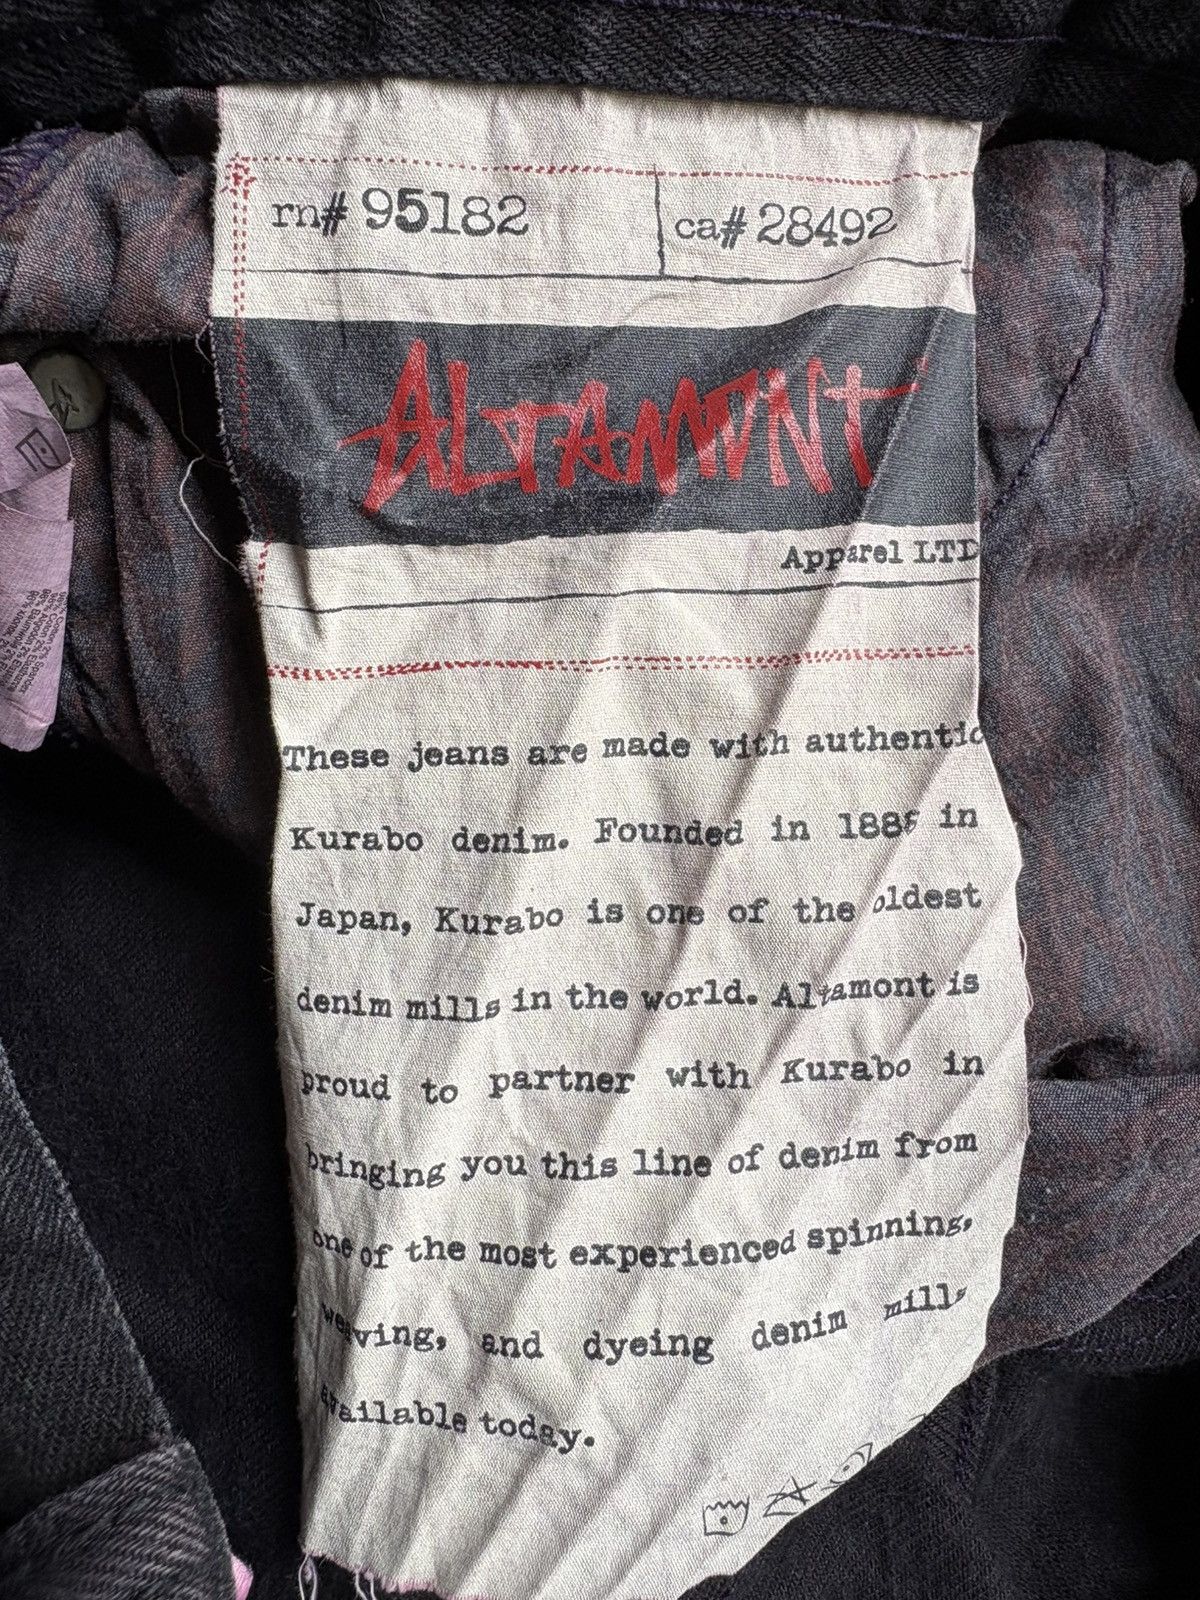 rn# 95182 ca# 28492
ALTAMONT
Apparel LTD
These jeans are made with authentic
Kurabo denim. Founded in 1888 in
Japan, Kurabo is one of the oldest
denim mills in the world. Altamont is
proud to partner with Kurabo in
bringing you this line of denim from
one of the most experienced spinning,
weaving, and dyeing denim mills
available today.